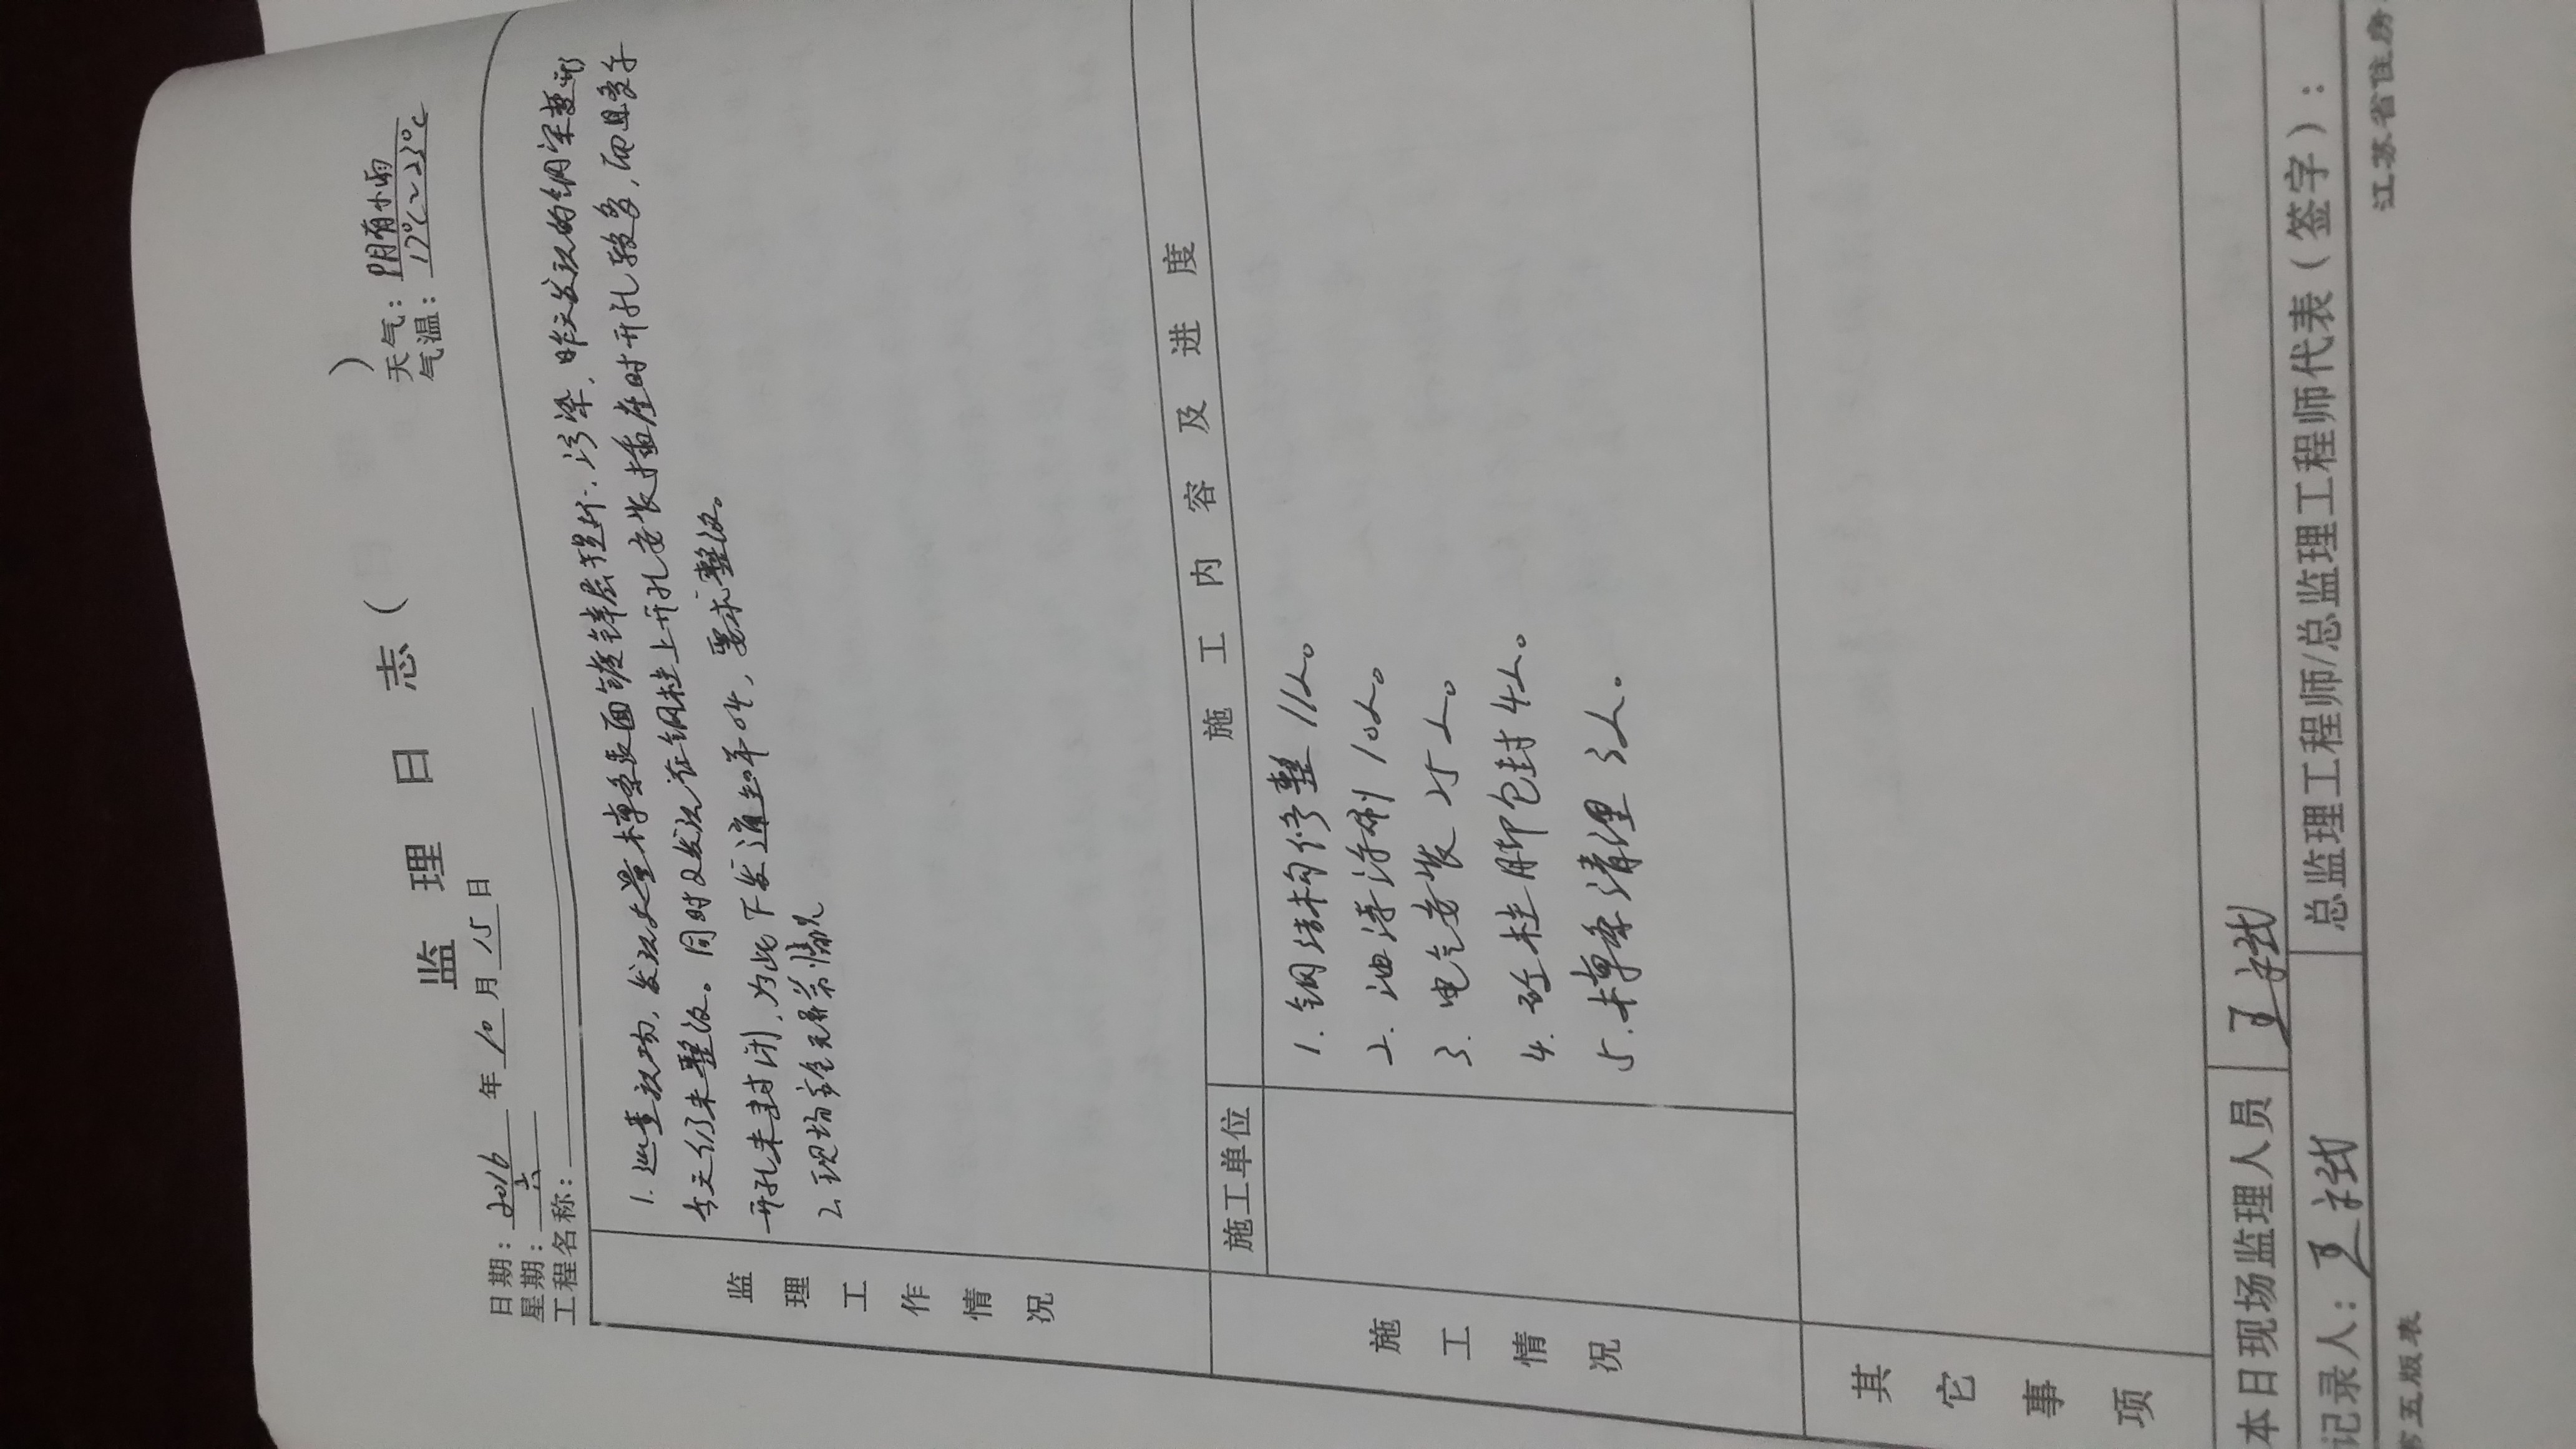 监理日志（ ）
日期：2016年10月15日 天气：阴有小雨
星期：六 气温：17℃~23℃
工程名称：
监理工作情况
1. 巡查现场，发现大量檩条表面镀锌层损坏、污染，昨天发现的钢梁变形
今天仍未整改。同时又发现在钢柱上开孔安装插座时开孔较多，而且多余
开孔未封闭，为此下发通知单04，要求整改。
2. 现场安全无异常情况
施工情况
施工单位 施工内容及进度
1. 钢结构修整11人。
2. 油漆涂刷10人。
3. 电气安装25人。
4. 砼柱脚包封4人。
5. 檩条清理3人。
其它事项
本日现场监理人员 王
记录人：王 总监理工程师/总监理工程师代表（签字）：
第五版表 江苏省住房